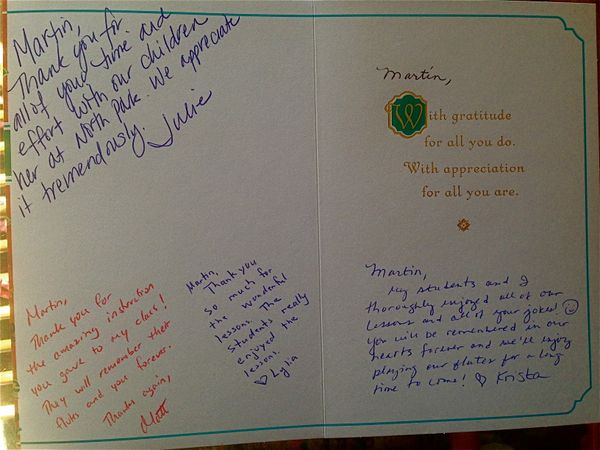 Martin,
Thank you for
all of your time and
effort with our children
her at North Park. We appreciate
it tremendously. Julie
Martin,
Thank you for
the amazing instruction
you gave to my class!
They will remember their
flutes and you forever.
Thanks again,
Matt
Martin,
Thank you
so much for
the wonderful
lessons. The
students really
enjoyed the
lessons.
♡ Lylia
Martin,
With gratitude
for all you do.
With appreciation
for all you are.
Martin,
My students and I
thoroughly enjoyed all of our
lessons and all of your jokes! ☺
You will be remembered in our
hearts forever and we'll enjoy
playing our flutes for a long
time to come! ♡ Krista